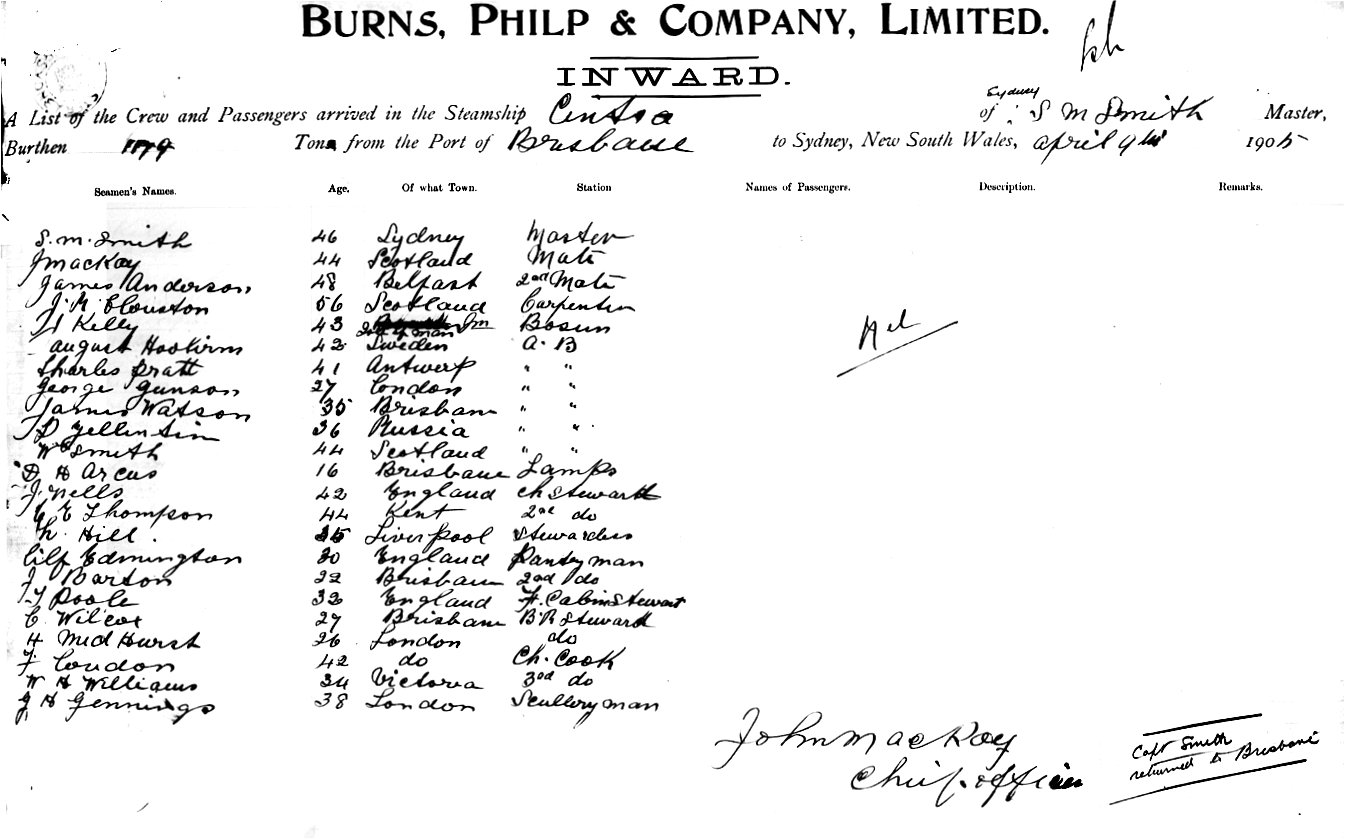 BURNS, PHILP & COMPANY, LIMITED.
INWARD.
A List of the Crew and Passengers arrived in the Steamship of Sydney S M Smith Master,
Burthen 1179 Tons from the Port of Brisbane to Sydney, New South Wales, april 9th 1905
Seamen's Names. Age. Of what Town. Station Names of Passengers. Description. Remarks.
S. M. Smith 46 Sydney Master
J MacKay 44 Scotland Mate
James Anderson 48 Belfast 2nd Mate
J. M. Clouston 56 Scotland Carpenter
Kelly 43 Isle of man Bosun
august 42 Sweden A. B
Charles Pratt 41 Antwerp " "
George Gunson 27 London " "
James Watson 35 Brisbane " "
36 Russia " "
W Smith 44 Scotland " "
D H Arcus 16 Brisbane Lamps
J. Nells 42 England Ch Steward
E Thompson 44 Kent 2nd do
Hill. Liverpool Stewardess
Edmington 30 England Pantryman
J Barton 22 Brisbane 2nd do
Poole 32 England F. Cabin Stewart
C Wilcox 27 Brisbane B.R Steward
H MidHurst 26 London do
F London 42 do Ch. Cook
W H Williams 34 Victoria 3rd do
J H Jennings 38 London Scullery man
Nil
John MacKay
Chief officer
Capt Smith
returned to Brisbane